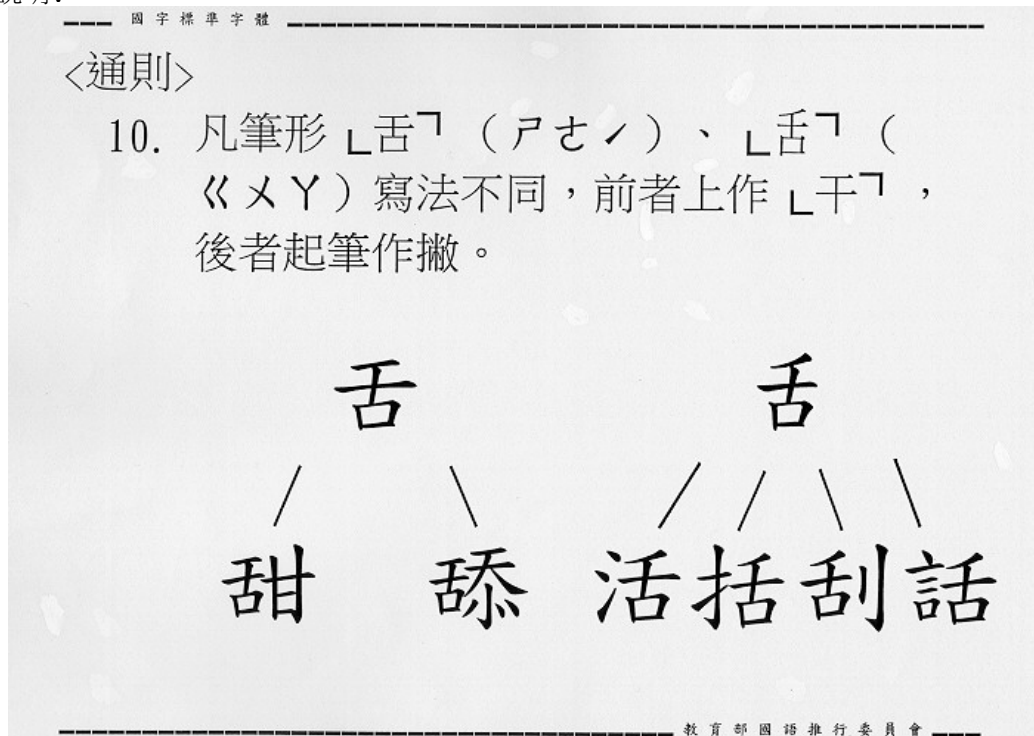 國字標準字體
<通則>
10. 凡筆形﹂舌﹁（ㄕㄜˊ）、﹂𠯑﹁（
ㄍㄨㄚ）寫法不同，前者上作﹂干﹁，
後者起筆作撇。
舌 𠯑
甜 舔 活 括 刮 話
教育部國語推行委員會